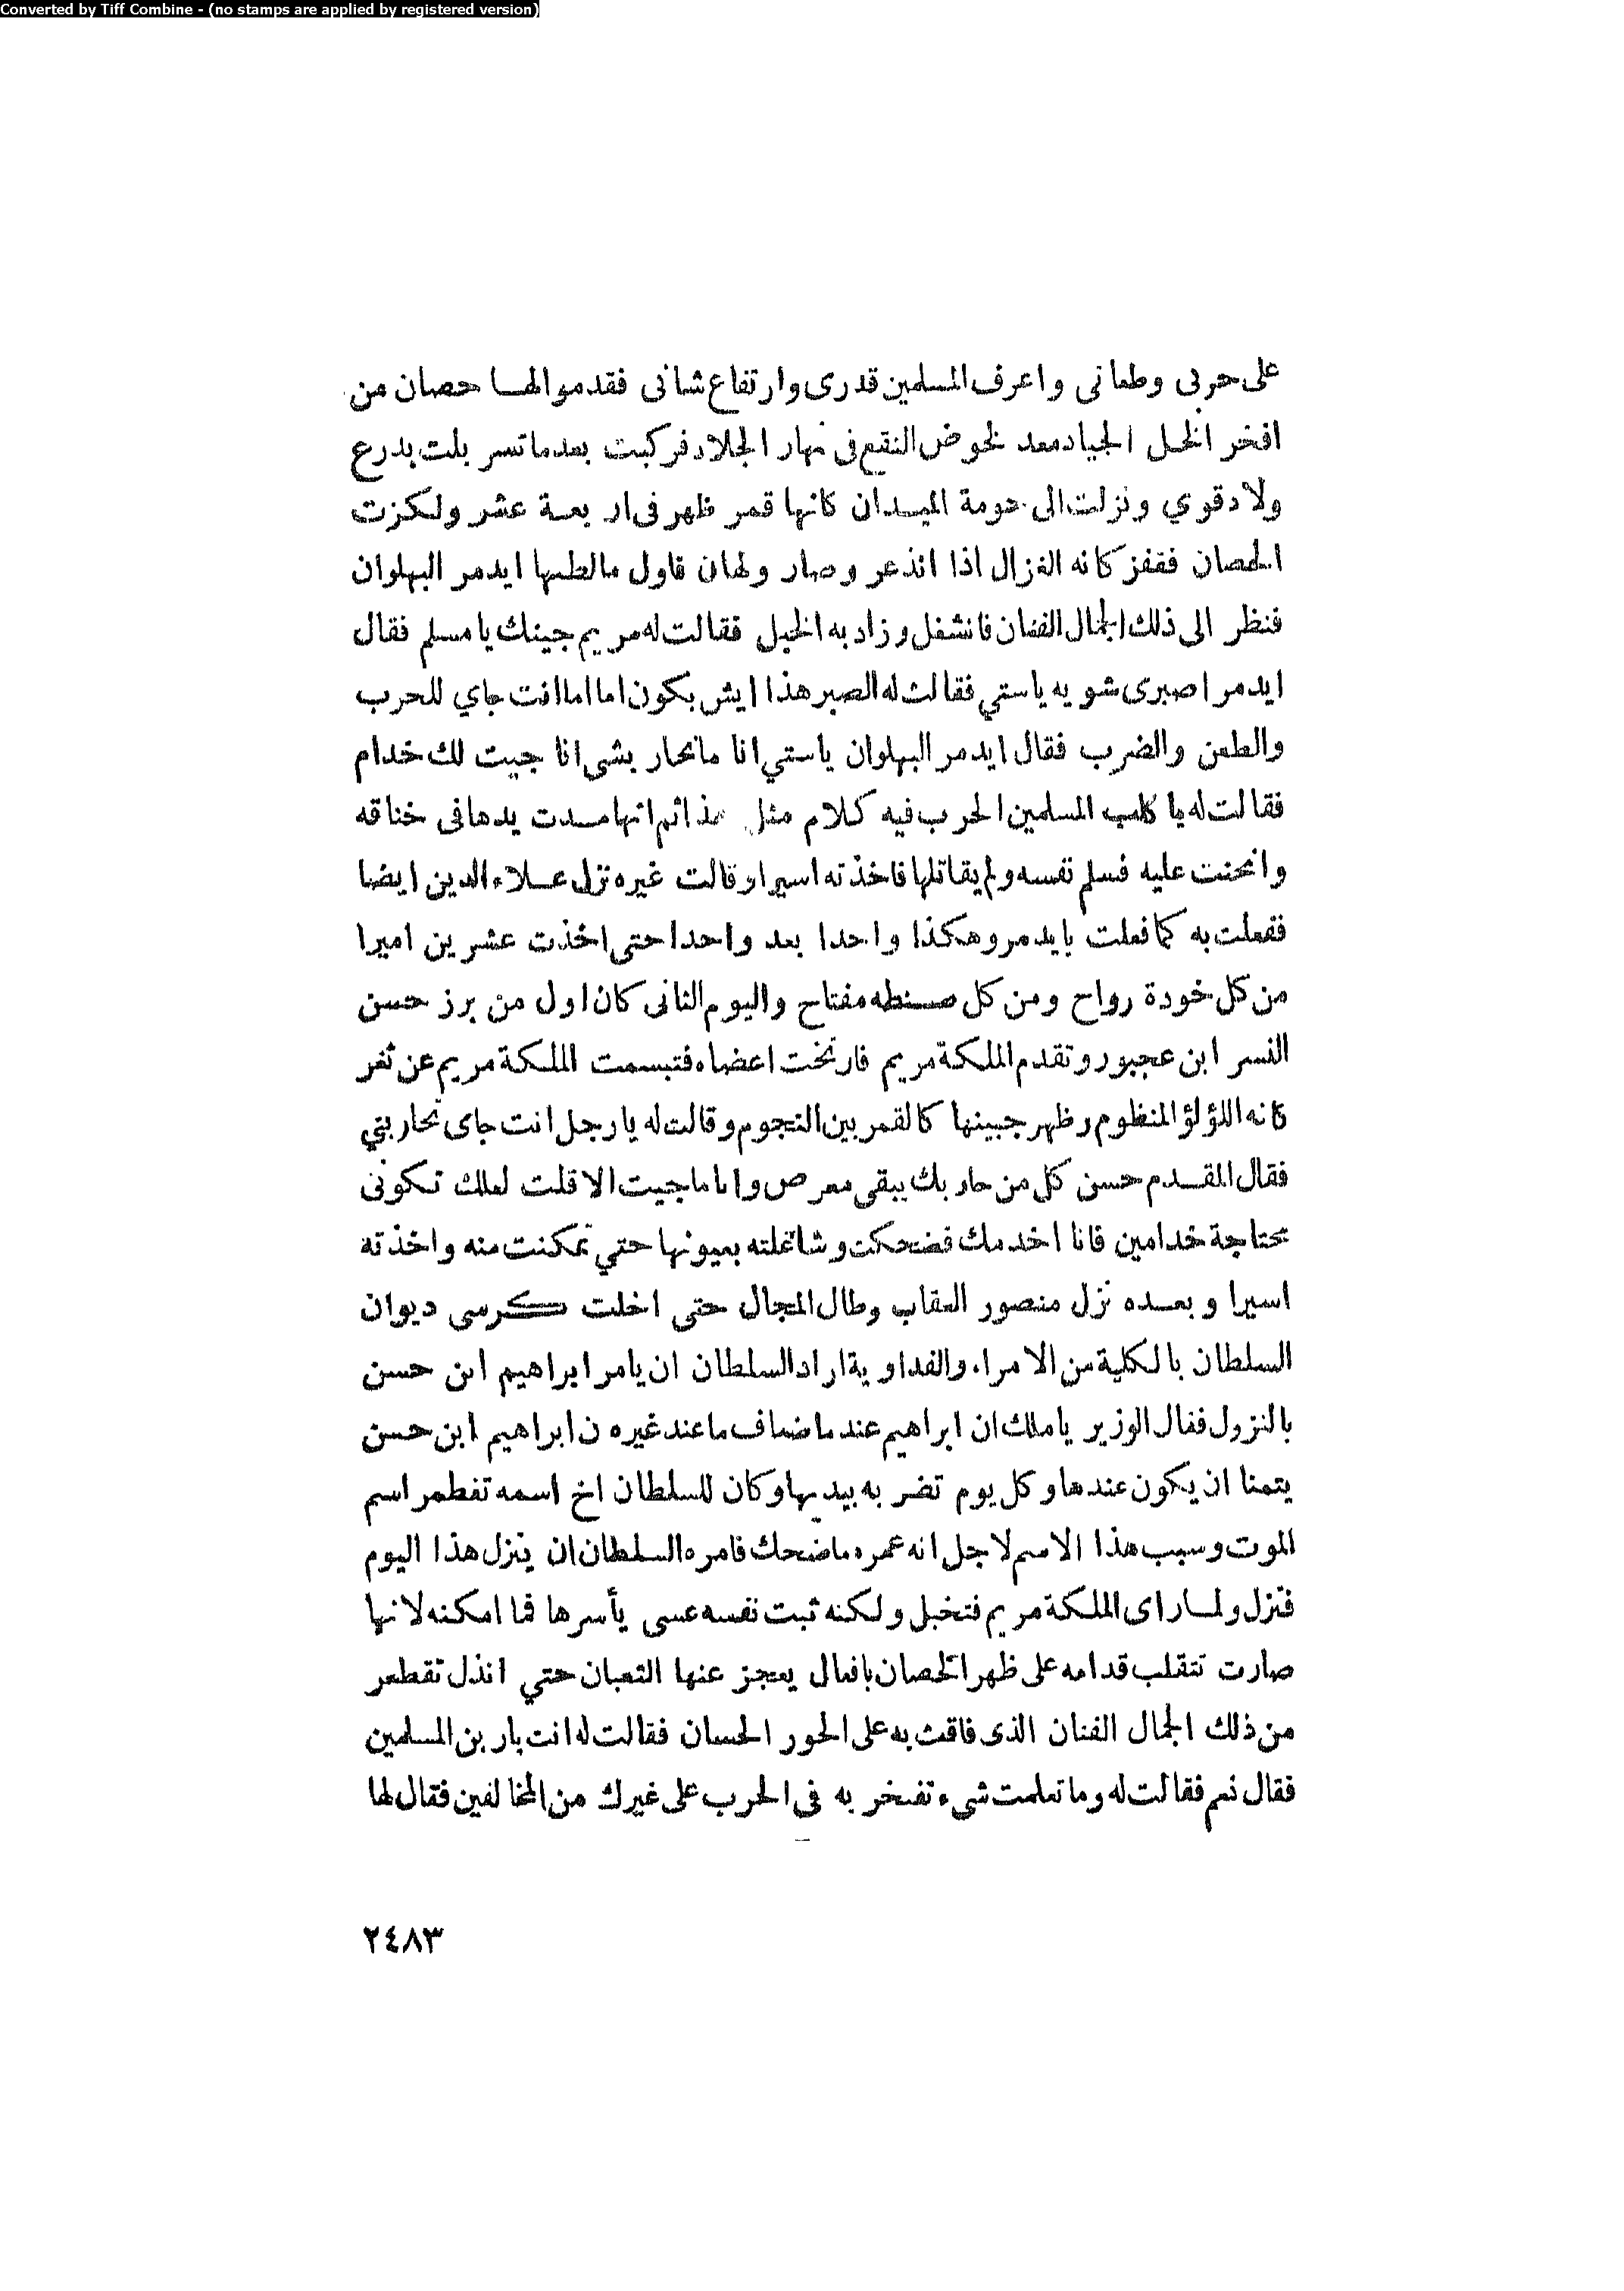 Converted by Tiff Combine - (no stamps are applied by registered version)
على حربى وطعانى واعرف المسلمين قدرى وارتفاع شانى فقدموا لها حصان من
افخر الخيل الجياد معد لخوض النقع فى نهار الجلاد فركبت بعد ما تسر بلت بدرع
ولا دقوي ونزلت الى حومة الميدان كانها قمر ظهر فى اربعة عشر ولكزت
الحصان فقفز كانه الغزال اذا انذعر وصار ولهان فاول مالطسها ايدمر البهلوان
فنظر الى ذلك الجمال الفتان فانشغل وزاد به الخبل فقالت له مريم جيتك يا مسلم فقال
ايدمر اصبرى شويه ياستي فقالت له الصبر هذا ايش بكون اما اما انت جاي للحرب
والطعن والضرب فقال ايدمر البهلوان ياستي انا مانحار بشى انا جيت لك خدام
فقالت له يا كلب المسلمين الحرب فيه كلام مثل هذا ثم انها مدت يدها فى خناقه
وانحنت عليه فسلم نفسه ولم يقاتلها فاخذته اسيرا وقالت غيره نزل علاء الدين ايضا
ففعلت به كما فعلت بايدمر وهكذا واحدا بعد واحدا حتى اخذت عشرين اميرا
من كل خودة رواح ومن كل صنطه مفتاح واليوم الثانى كان اول من برز حسن
النسر ابن عجبور وتقدم الملكة مريم فارتخت اعضاه فتبسمت الملكة مريم عن ثغر
كانه اللؤلؤ المنظوم وظهر جبينها كالقمر بين النجوم وقالت له يا رجل انت جاى تحاربني
فقال المقدم حسن كل من حاربك يبقى معرص وانا ما جيت الا قلت لعلك تكونى
محتاجة خدامين فانا اخدمك فضحكت وشاغلته بعيونها حتي تمكنت منه واخذته
اسيرا وبعده نزل منصور العقاب وطال المجال حتى اخلت كرسى ديوان
السلطان بالكلية من الامراء والفداوية اراد السلطان ان يامر ابراهيم ابن حسن
بالنزول فقال الوزير يا ملك ان ابراهيم عند ما ضاف ما عند غيره ن ابراهيم ابن حسن
يتمنا ان يكون عندها وكل يوم تضر به بيديها وكان للسلطان اخ اسمه تقطمر اسم
الموت وسبب هذا الاسم لاجل انه عمره ما ضحك فامره السلطان ان ينزل هذا اليوم
فنزل ولما راى الملكة مريم فتخبل ولكنه ثبت نفسه عسى يأسرها فما امكنه لانها
صارت تتقلب قدامه على ظهر الحصان بافعال يعجز عنها الثعبان حتي انذل تقطمر
من ذلك الجمال الفتان الذى فاقت به على الحور الحسان فقالت له انت يار بن المسلمين
فقال نعم فقالت له وما تعلمت شىء تفتخر به فى الحرب على غيرك من المخالفين فقال لها
٢٤٨٣